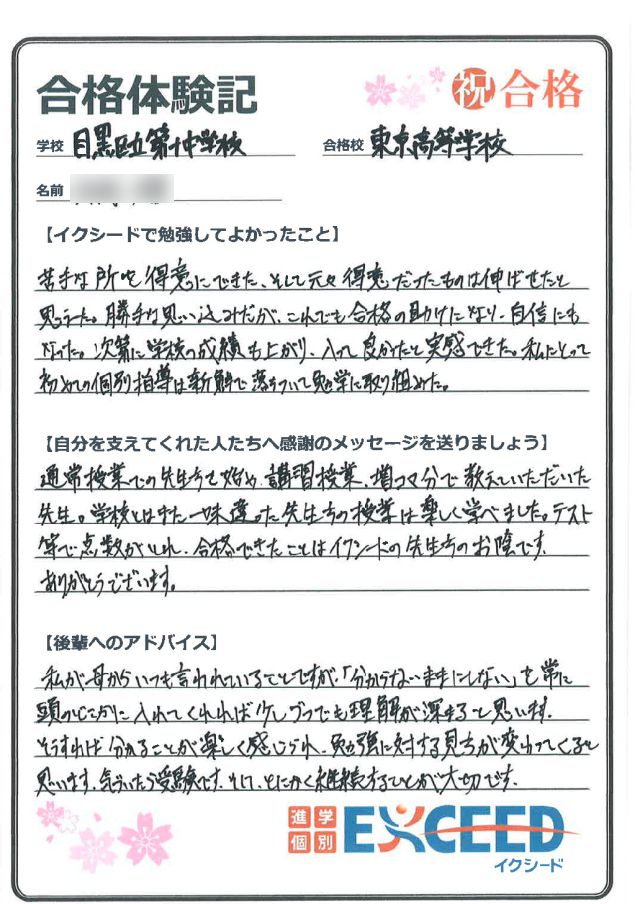 合格体験記
祝 合格
学校 目黒区立第十中学校 合格校 東京高等学校
名前
【イクシードで勉強してよかったこと】
苦手な所を得意にできた、そして元々得意だったものは伸ばせたと
思った。勝手な思い込みだが、これでも合格の助けになり、自信にも
なった。次第に学校の成績も上がり、入って良かったと実感できた。私にとって
初めての個別指導は新鮮で落ちついて勉学に取り組めた。
【自分を支えてくれた人たちへ感謝のメッセージを送りましょう】
通常授業での先生方を始め、講習授業、増コマ分で教えていただいた
先生。学校とはまた一味違った先生方の授業は楽しく学べました。テスト
等で点数がとれ、合格できたことはイクシードの先生方のお陰です。
ありがとうございます。
【後輩へのアドバイス】
私が母からいつも言われていることですが、「分からないままにしない」を常に
頭のどこかに入れてくれれば少しづつでも理解が深まると思います。
そうすれば分かることが楽しく感じられ、勉強に対する見方が変わってくると
思います。気づいたら受験です。そして、とにかく継続することが大切です。
進学
個別
EXCEED
イクシード